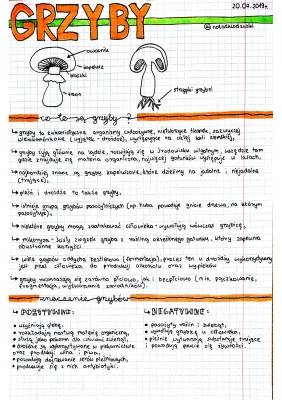 GRZYBY
20.04.2019r.
owocnia
kapelusz
blaszki
trzon
strzępki grzybni
co to są grzyby?
↳ grzyby to eukariotyczne organizmy cudzożywne, niektóre tkankowe, zazwyczaj
wielokomórkowe (wyjątek - drożdże), występujące na całej kuli ziemskiej,
↳ grzyby żyją głównie na lądzie, rozwijają się w środowisku wilgotnym, wszędzie tam
gdzie znajduje się materia organiczna, najwięcej gatunków występuje w lasach,
↳ najbardziej znane są grzyby kapeluszowe, które dzielimy na jadalne i niejadalne
(trujące),
↳ pleśń i drożdże to także grzyby,
↳ istnieje grupa grzybów pasożytniczych (np. huba powoduje gnicie drzewa, na którym
pasożytuje),
↳ niektóre grzyby mogą zaatakować człowieka - wywołują wówczas grzybicę,
↳ mikoryza - ścisły związek grzyba z rośliną określonego gatunku, który zapewnia
obustronne korzyści
↳ wiele grzybów oddycha beztlenowo (fermentacja), proces ten u drożdży wykorzystywany
jest przez człowieka do produkcji alkoholu oraz wypieków
↳ grzyby rozmnażają się zarówno płciowo, jak i bezpłciowo (min. pączkowanie,
fragmentacja, wytwarzanie zarodników)
znaczenie grzybów
↳ POZYTYWNE:
• użyźniają glebę,
• rozkładają martwą materię organiczną,
• służą jako pokarm dla człowieka i zwierząt,
• drożdże są wykorzystywane w piekarnictwie
oraz produkcji wina i piwa,
• powodują dojrzewanie serów pleśniowych,
• produkuje się z nich antybiotyki.
↳ NEGATYWNE:
• pasożyty roślin i zwierząt,
• wywołują grzybicę u człowieka,
• pleśnie wytwarzają substancje trujące
i powodują psucie się żywności.